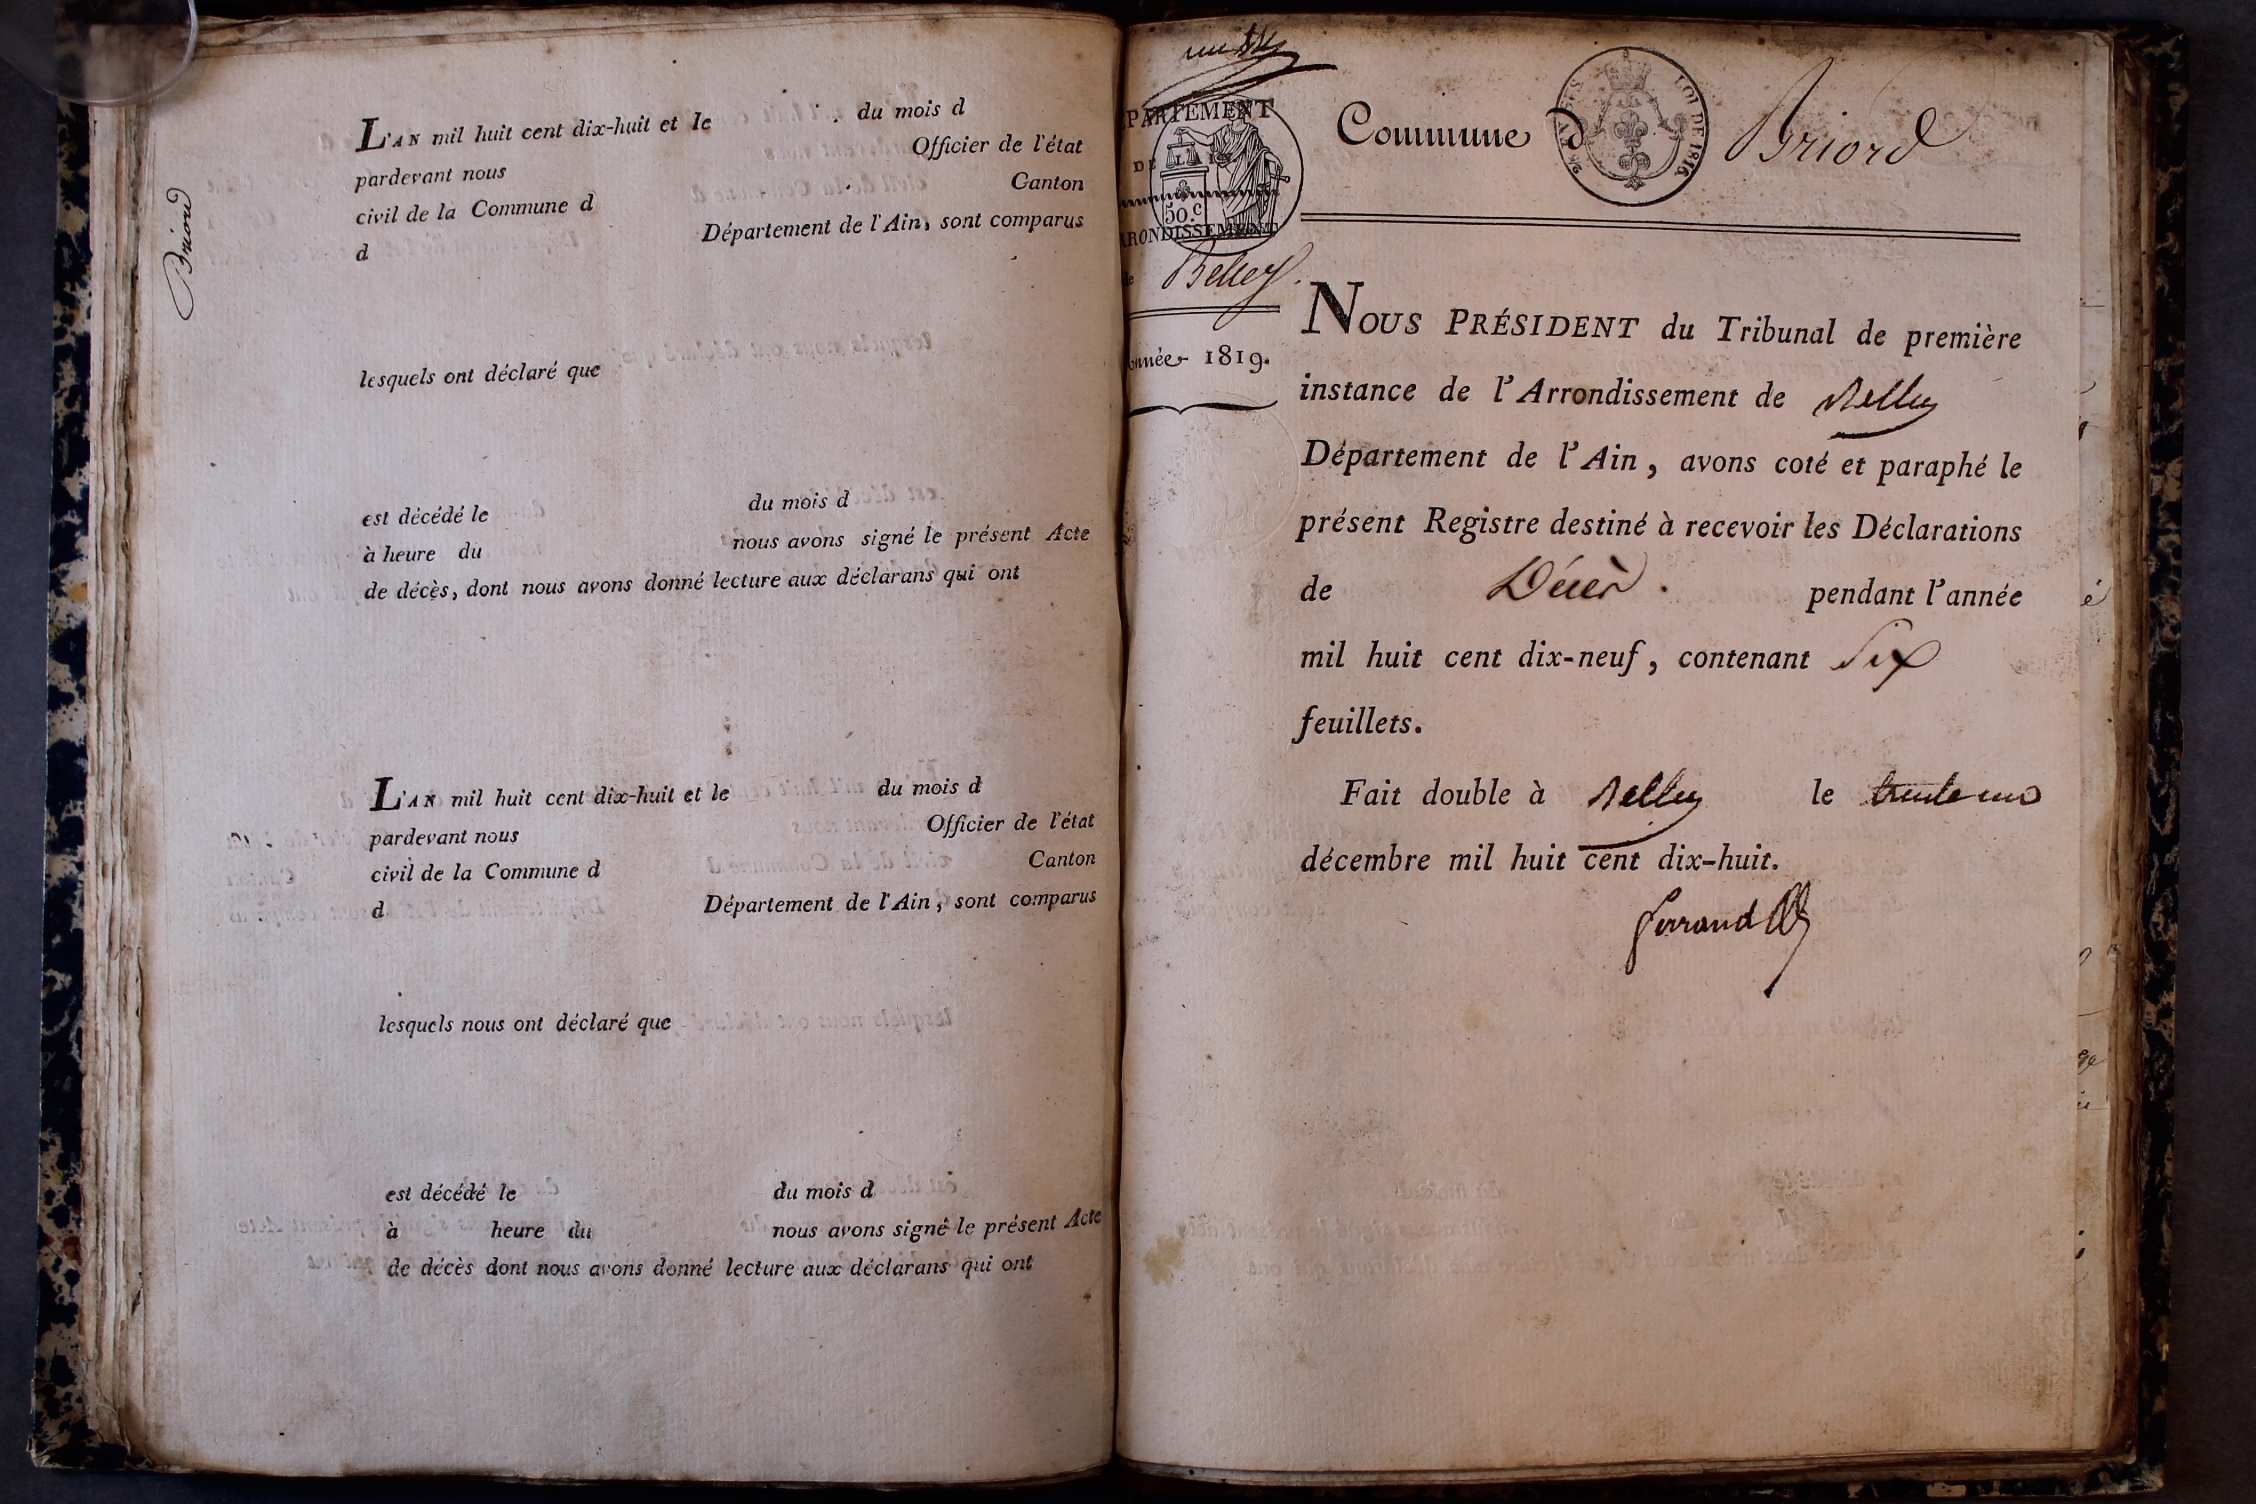 Briord
L'AN mil huit cent dix-huit et le du mois d
pardevant nous Officier de l'état
civil de la Commune d Canton
d Département de l'Ain, sont comparus
lesquels ont déclaré que
est décédé le du mois d
à heure du nous avons signé le présent Acte
de décès, dont nous avons donné lecture aux déclarans qui ont
L'AN mil huit cent dix-huit et le du mois d
pardevant nous Officier de l'état
civil de la Commune d Canton
d Département de l'Ain, sont comparus
lesquels nous ont déclaré que
est décédé le du mois d
à heure du nous avons signé le présent Acte
de décès dont nous avons donné lecture aux déclarans qui ont
PARTEMENT
DE L'AIN
50.c
RONDISSEMENT
de Belley.
année 1819.
Commune d Briord
LOI DE 1816.
NOUS PRÉSIDENT du Tribunal de première
instance de l'Arrondissement de Belley
Département de l'Ain, avons coté et paraphé le
présent Registre destiné à recevoir les Déclarations
de Décès. pendant l'année
mil huit cent dix-neuf, contenant Six
feuillets.
Fait double à Belley le trente un
décembre mil huit cent dix-huit.